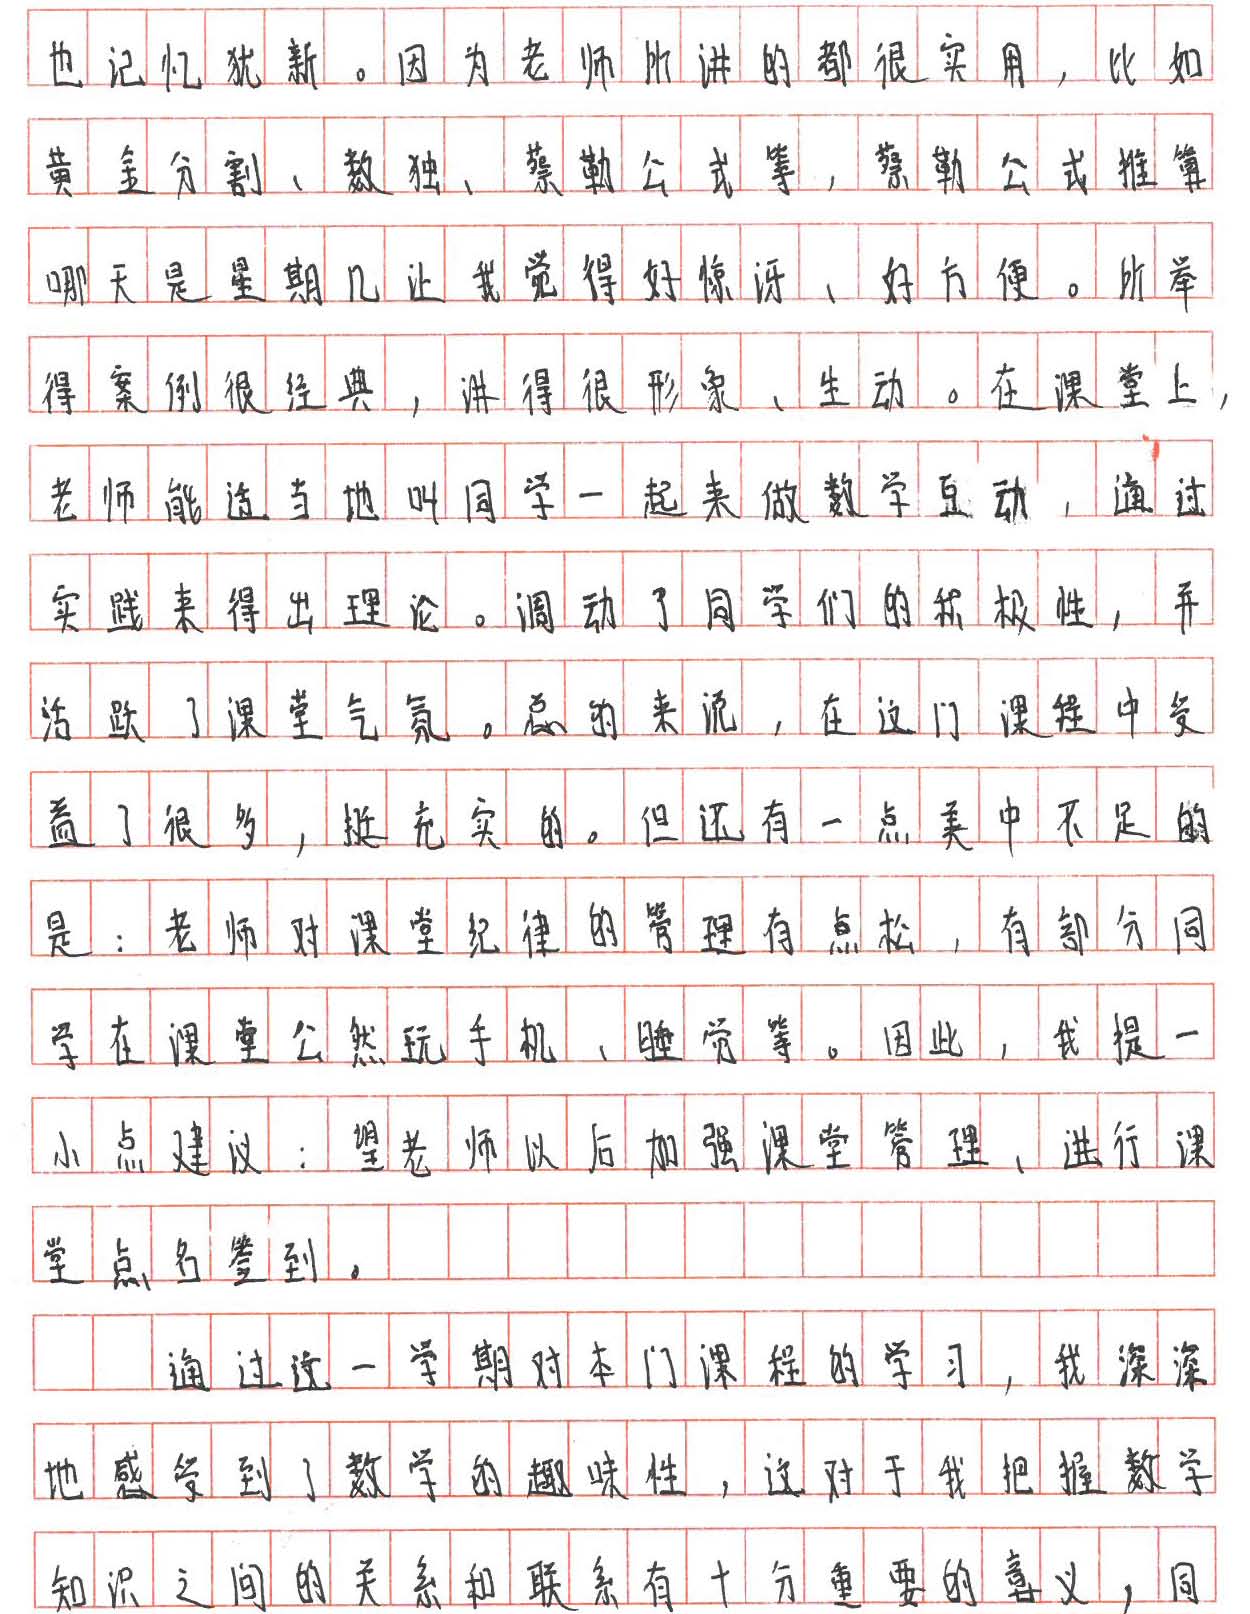 也记忆犹新。因为老师所讲的都很实用，比如
黄金分割、数独、蔡勒公式等，蔡勒公式推算
哪天是星期几让我觉得好惊讶、好方便。所举
得案例很经典，讲得很形象、生动。在课堂上，
老师能适当地叫同学一起来做数学互动，通过
实践来得出理论。调动了同学们的积极性，并
活跃了课堂气氛。总的来说，在这门课程中受
益了很多，挺充实的。但还有一点美中不足的
是：老师对课堂纪律的管理有点松，有部分同
学在课堂公然玩手机、睡觉等。因此，我提一
小点建议：望老师以后加强课堂管理、进行课
堂点名签到。
通过这一学期对本门课程的学习，我深深
地感受到了数学的趣味性，这对于我把握数学
知识之间的关系和联系有十分重要的意义，同